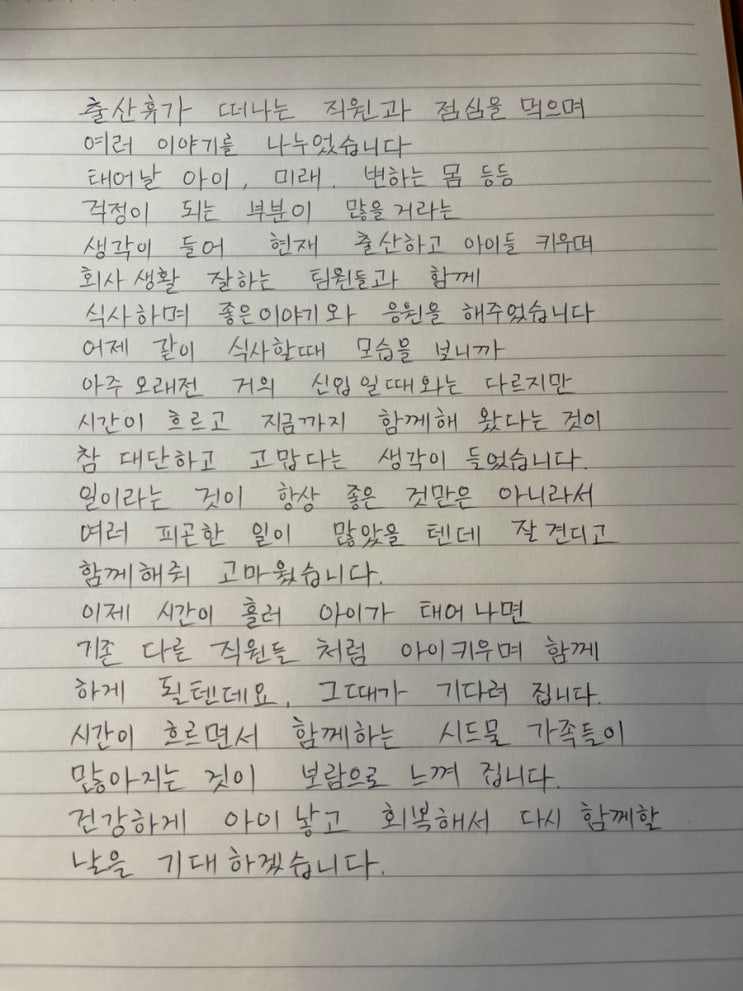 출산휴가 떠나는 직원과 점심을 먹으며
여러 이야기를 나누었습니다
태어날 아이, 미래, 변하는 몸 등등
걱정이 되는 부분이 많을거라는
생각이 들어 현재 출산하고 아이들 키우며
회사 생활 잘하는 팀원들과 함께
식사하며 좋은이야기와 응원을 해주었습니다
어제 같이 식사할때 모습을 보니까
아주 오래전 거의 신입일때와는 다르지만
시간이 흐르고 지금까지 함께해 왔다는 것이
참 대단하고 고맙다는 생각이 들었습니다.
일이라는 것이 항상 좋은 것만은 아니라서
여러 피곤한 일이 많았을 텐데 잘 견디고
함께해줘 고마웠습니다.
이제 시간이 흘러 아이가 태어나면
기존 다른 직원들 처럼 아이키우며 함께
하게 될텐데요, 그때가 기다려 집니다.
시간이 흐르면서 함께하는 시드물 가족들이
많아지는 것이 보람으로 느껴 집니다.
건강하게 아이낳고 회복해서 다시 함께할
날을 기대하겠습니다.